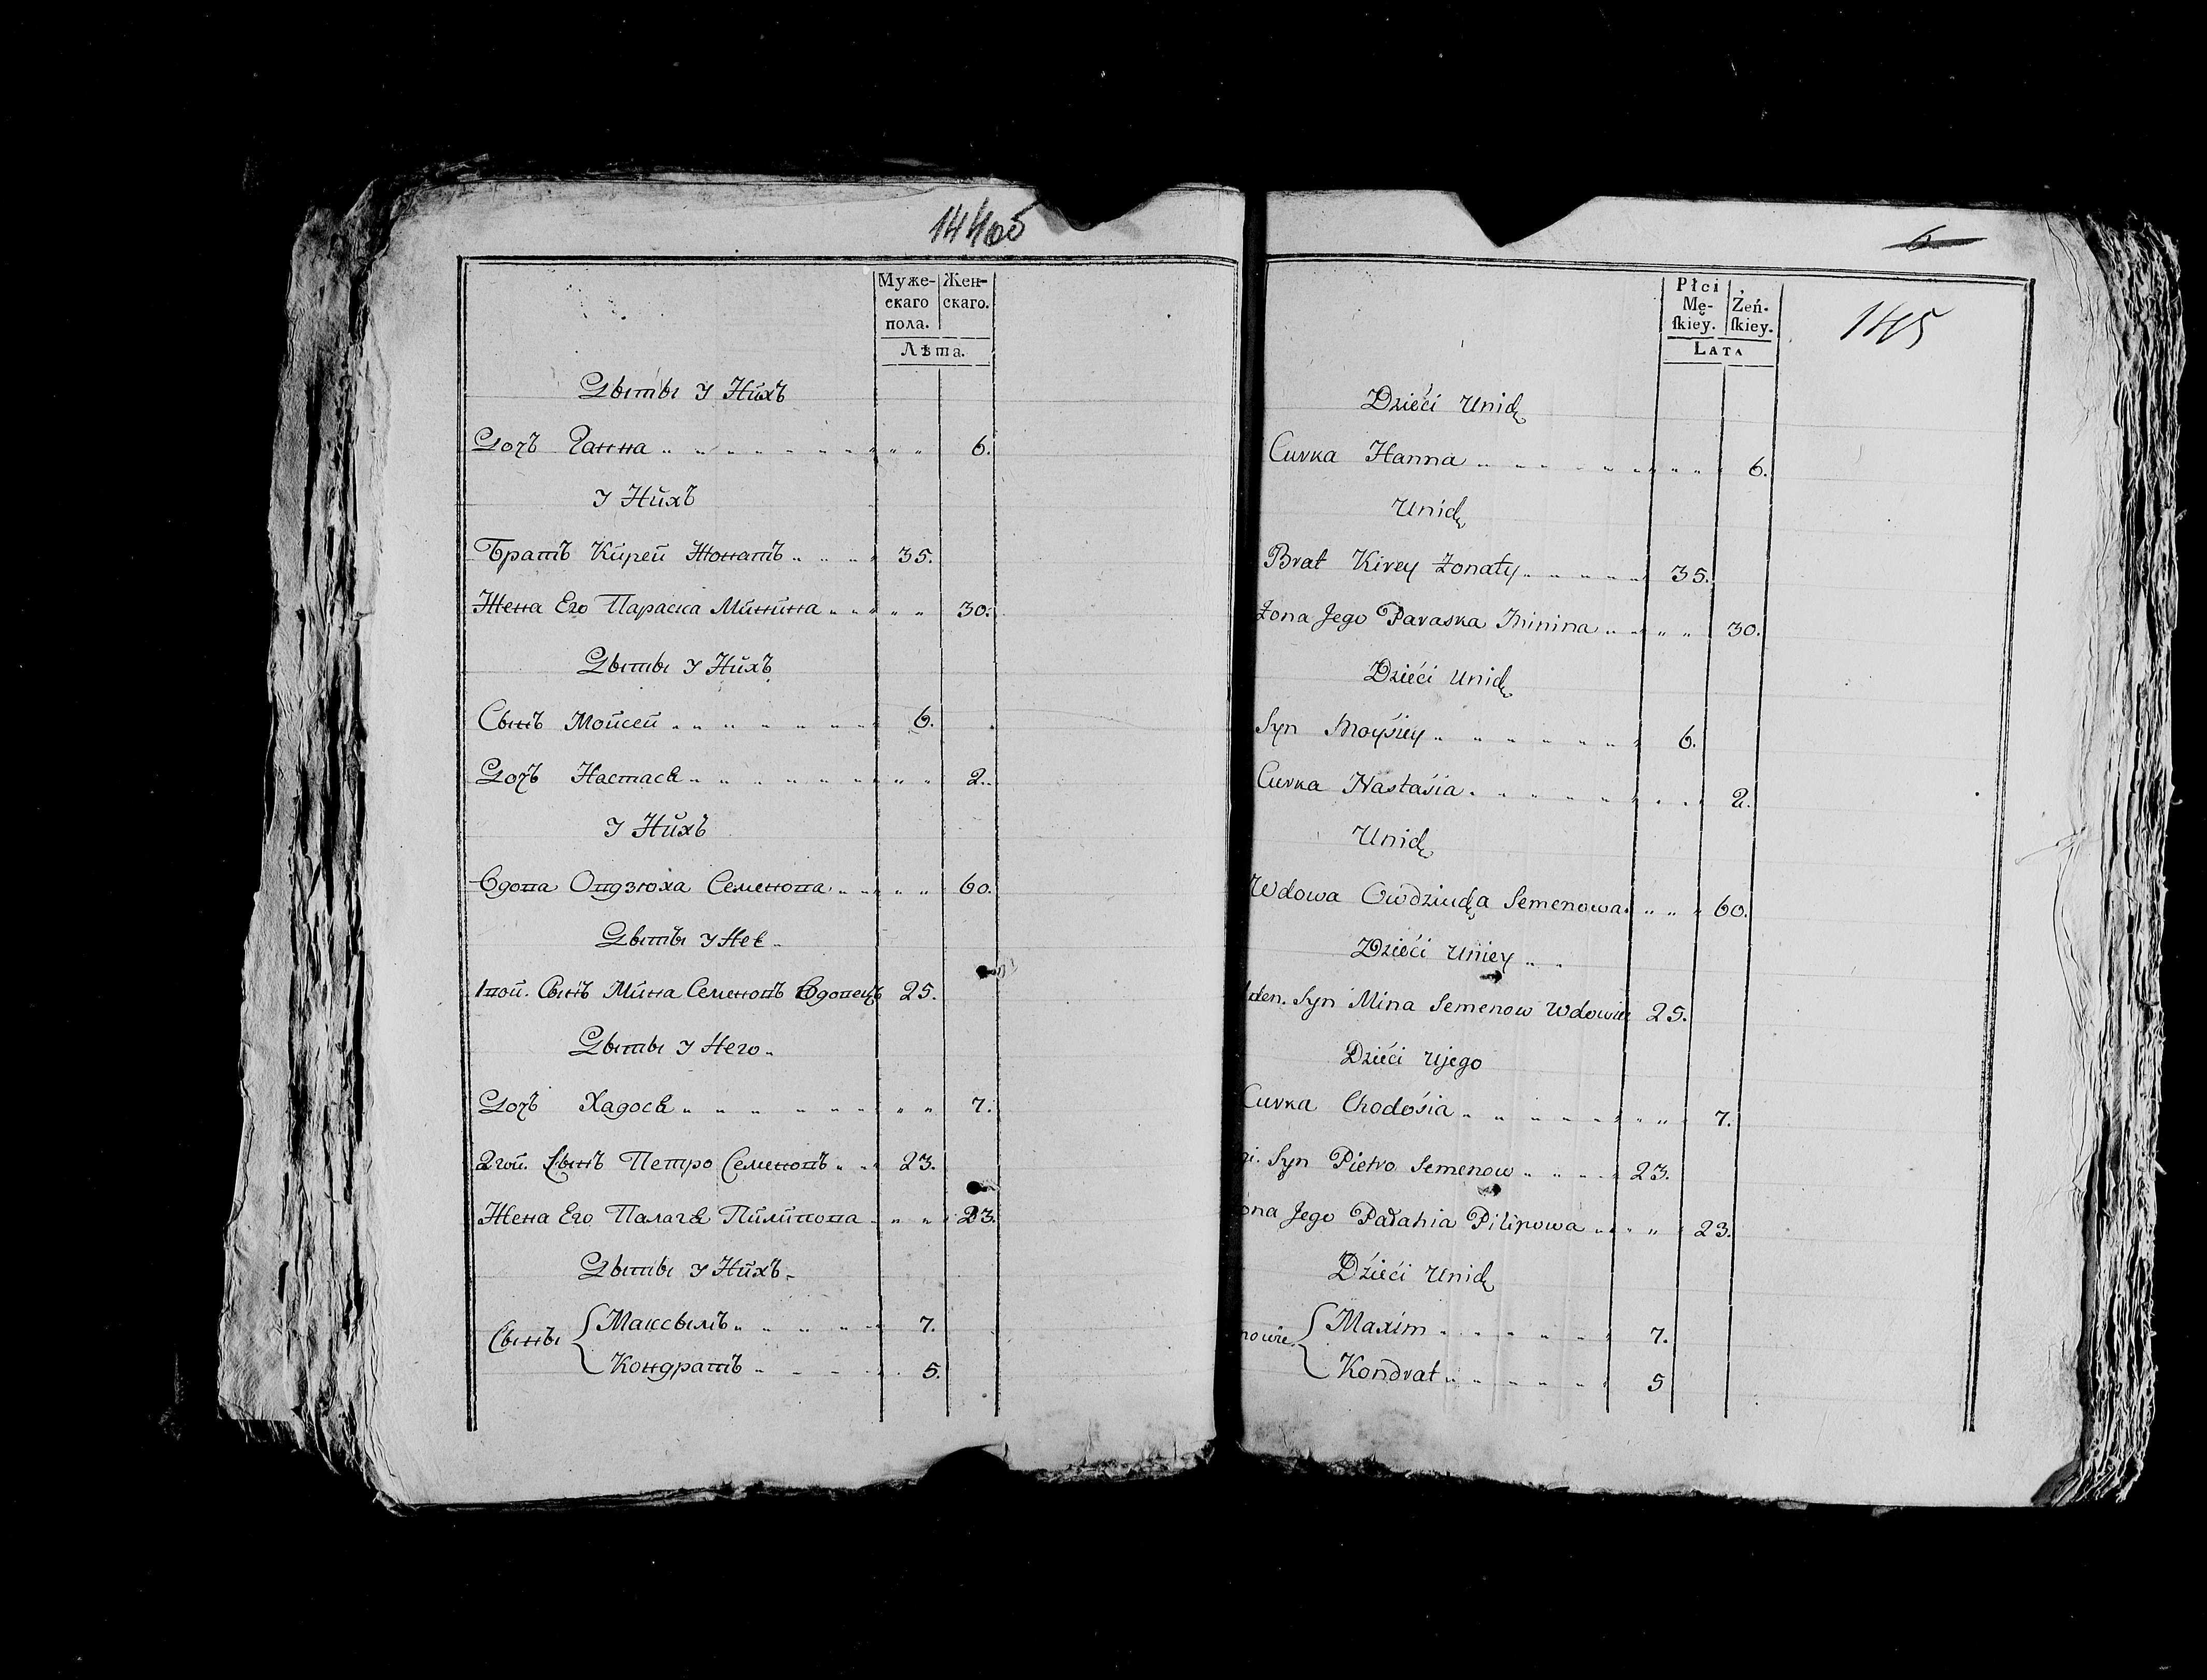 144об
Муже-
скаго
пола.
Жен-
скаго.
Лѣта.
Дѣтьі У Нйхъ
Дочъ Ганна 6.
У Нйхъ
Братъ Кйрей Жонатъ 35.
Жена Его Параска Мйнйна 30.
Дѣтьі У Нйхъ
Сынъ Мойсей 6.
Дочъ Настасѣ 2.
У Нйхъ
Вдова Овдзюха Семенова 60.
Дѣтьі У Неѣ
1вой. Сынъ Мйна Семеновъ Вдовецъ 25.
Дѣтьі У Него
Дочъ Хадосѣ 7.
2гой. Сынъ Петро Семеновъ 23.
Жена Его Палагѣ Пйлйпова 23.
Дѣтьі У Нйхъ
Сыньі { Максымъ 7.
Кондратъ 5.
6
145
Płci
Mę-
ſkiey.
Żeń-
ſkiey.
LATA
Dzieći Unich
Curka Hanna 6.
Unich
Brat Kirey Żonaty 35.
Żona Jego Paraska Minina 30.
Dzieći Unich
Syn Moyśiey 6.
Curka Nastaśia 2.
Unich
Wdowa Owdziucha Semenowa 60.
Dzieći Uniey
Syn Mina Semenow Wdowiec 25.
Dzieći Ujego
Curka Chodośia 7.
Syn Pietro Semenow 23.
ona Jego Pałahia Pilipowa 23.
Dźieći Unich
nowie { Maxim 7.
Kondrat 5